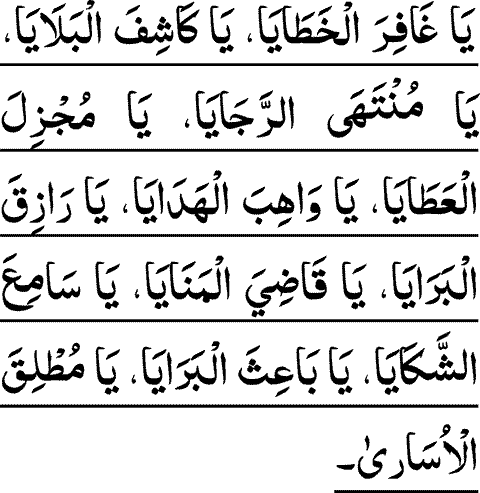 يَا غَافِرَ الْخَطَايَا، يَا كَاشِفَ الْبَلَايَا،
يَا مُنْتَهَى الرَّجَايَا، يَا مُجْزِلَ
الْعَطَايَا، يَا وَاهِبَ الْهَدَايَا، يَا رَازِقَ
الْبَرَايَا، يَا قَاضِيَ الْمَنَايَا، يَا سَامِعَ
الشَّكَايَا، يَا بَاعِثَ الْبَرَايَا، يَا مُطْلِقَ
الْاُسَارىٰ۔